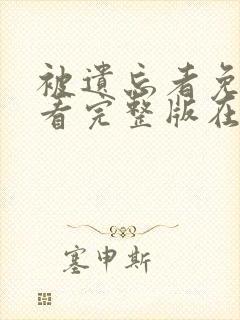 被遗忘者免
看完整版在
塞申斯